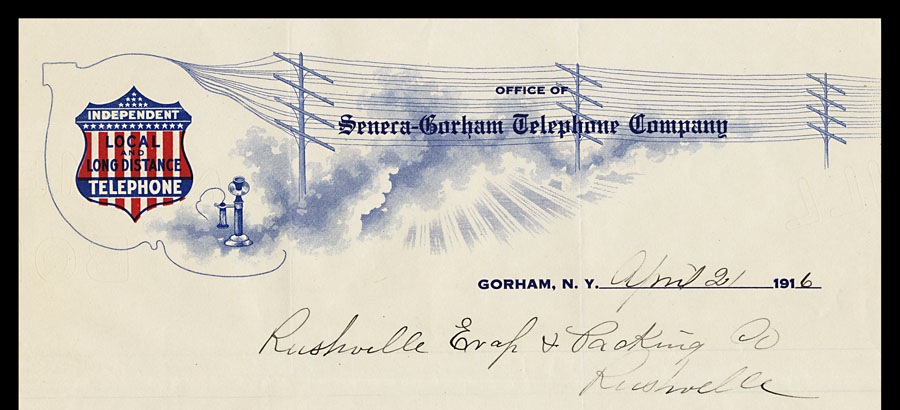 INDEPENDENT
LOCAL
AND
LONG DISTANCE
TELEPHONE
OFFICE OF
Seneca-Gorham Telephone Company
GORHAM, N. Y. April 21 1916
Rushville Evap & Packing Co
Rushville